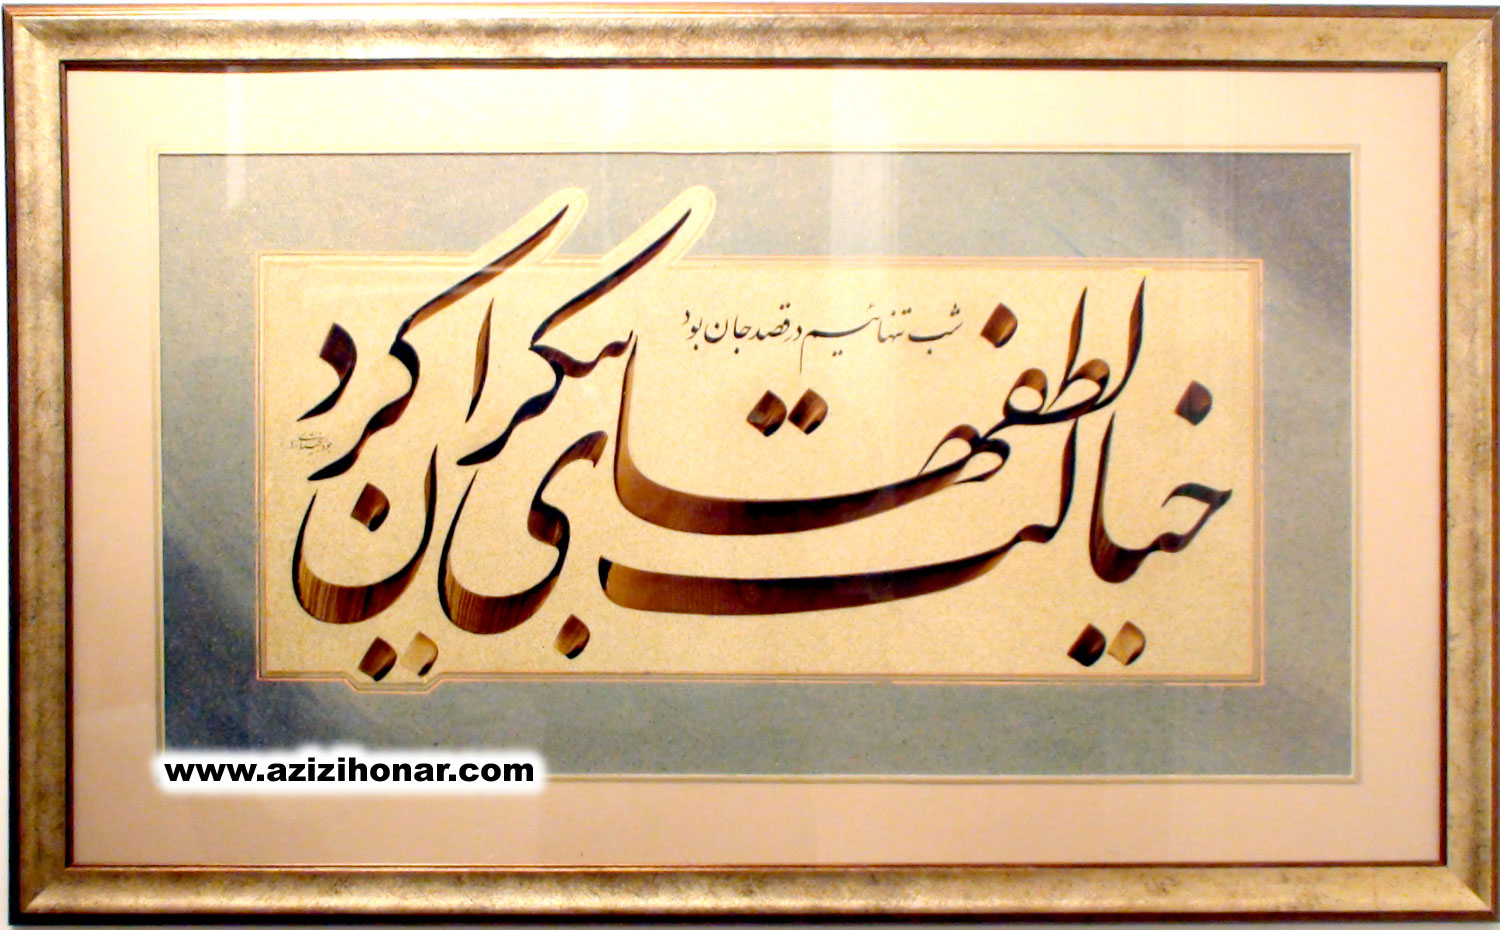 شب تنهائیم در قصد جان بود
خیالش لطفهای بیکران کرد
www.azizihonar.com